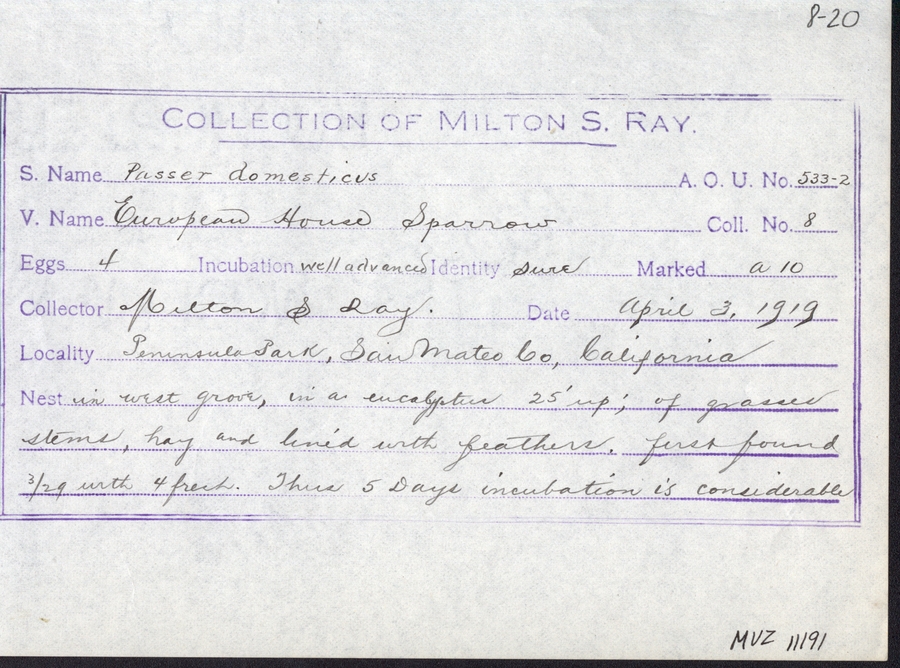 8-20
COLLECTION OF MILTON S. RAY.
S. Name Passer domesticus A. O. U. No. 533-2
V. Name European House Sparrow Coll. No. 8
Eggs 4 Incubation well advanced Identity sure Marked a 10
Collector Milton S Ray. Date April 3, 1919
Locality Peninsula Park, San Mateo Co, California
Nest in west grove, in a eucalyptus 25' up; of grasses
stems, hay and lined with feathers. first found
3/29 with 4 fresh. Thus 5 Days incubation is considerable
MVZ 11191